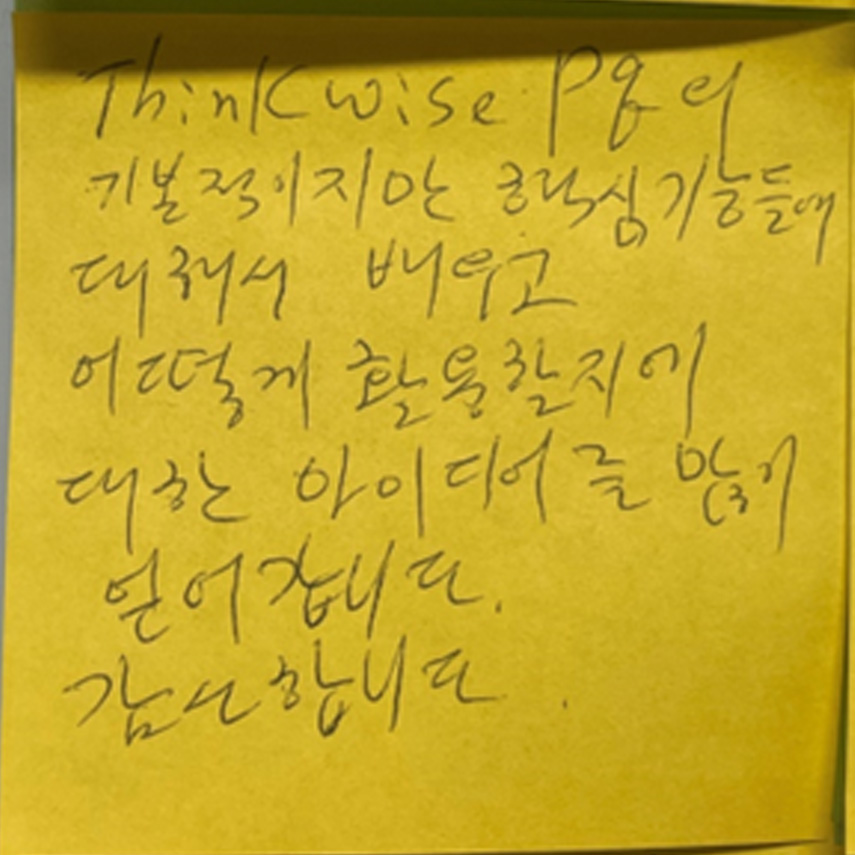 ThinkWise PQ의
기본적이지만 핵심기능들에
대해서 배우고
어떻게 활용할지에
대한 아이디어를 많이
얻어갑니다.
감사합니다.